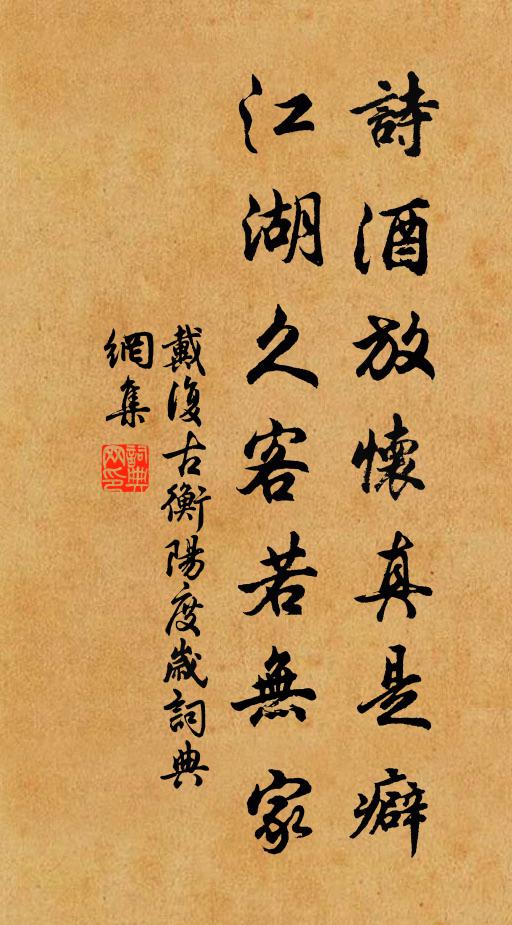 詩酒放懷真是癖
江湖久客若無家
戴復古衡陽度歲詞典
網集
詞典網印